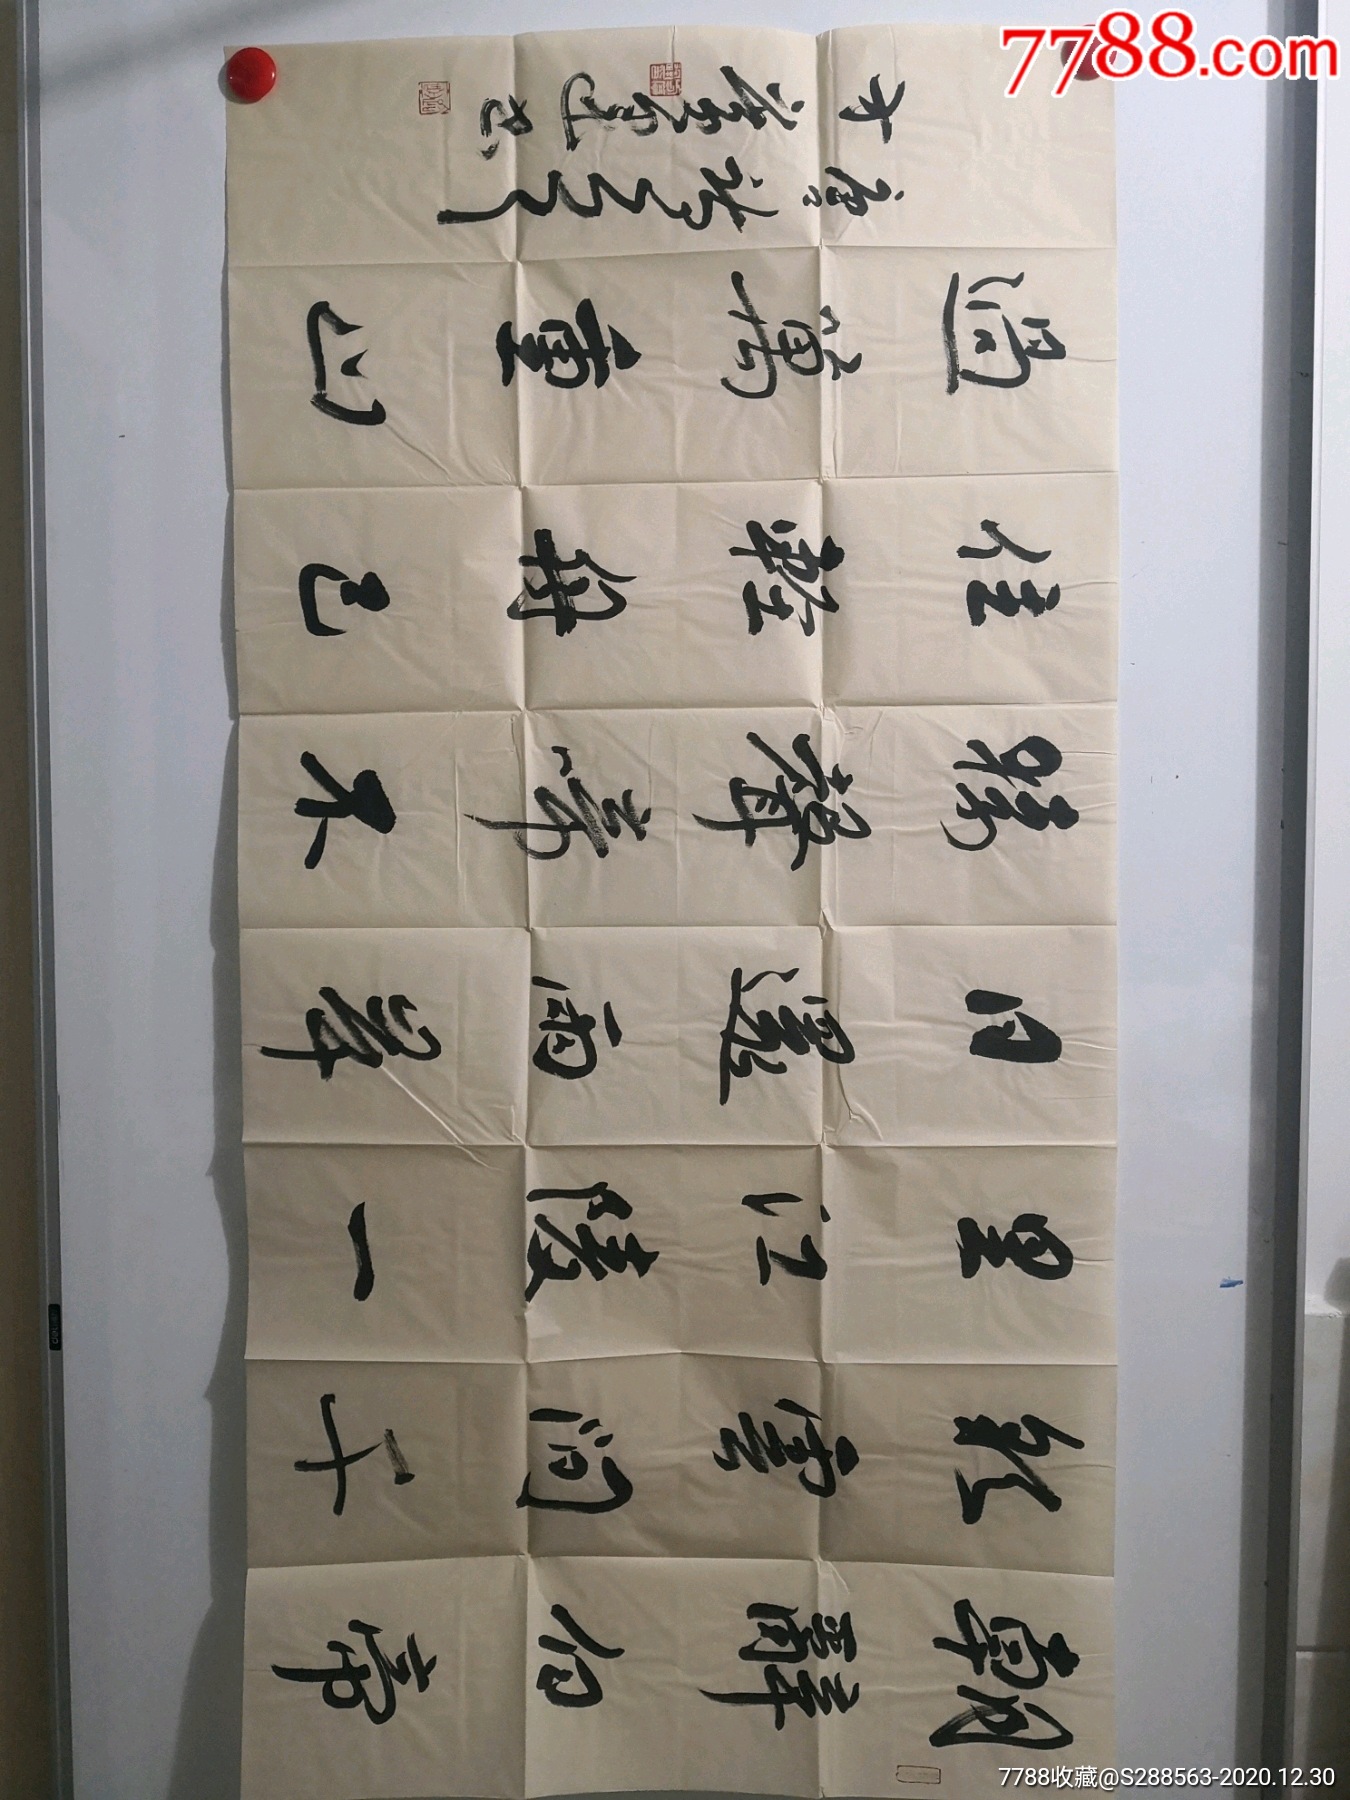 7788.com
朝辭白帝
彩雲間千
里江陵一
日還兩岸
猿聲啼不
住輕舟已
過萬重山
唐詩
7788收藏@S288563-2020.12.30